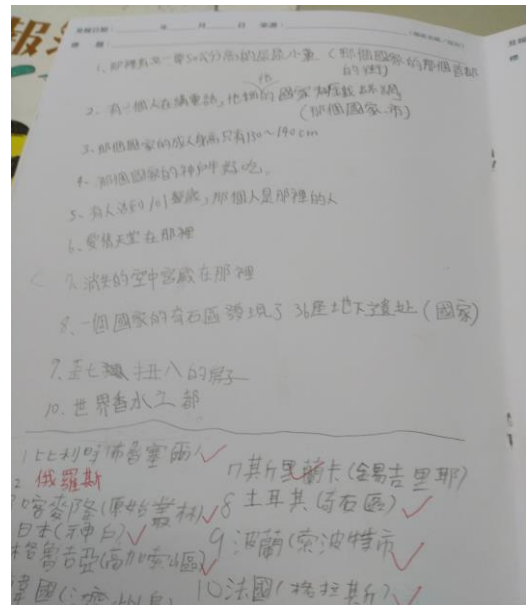 報
見報日期： 年 月 日 來源：
標 題：
1、那裡有一尊50公分高的尿尿小童（那個國家的那個首都的街）
2、有一個人在講電話，他
（那個國家.市）
3、那個國家的成人身高只有130～140cm
4、那個國家的神戶牛好吃。
5、有人活到101歲，那個人是那裡的人
6、愛情天堂在那裡
7、消失的空中宮殿在那裡
8、一個國家的奇石區發現了36座土地下遺址（國家）
9、歪七扭八的房子
10、世界香水之都
1 比利時佛魯塞爾
2 俄羅斯
喀麥隆（原始叢林）
日本（神戶）
格魯吉亞（高加索山區）
韓國（濟州島）
7 斯里蘭卡（錫吉里耶）
8 土耳其（奇石區）
9 波蘭（索波特市
10 法國（格拉斯）